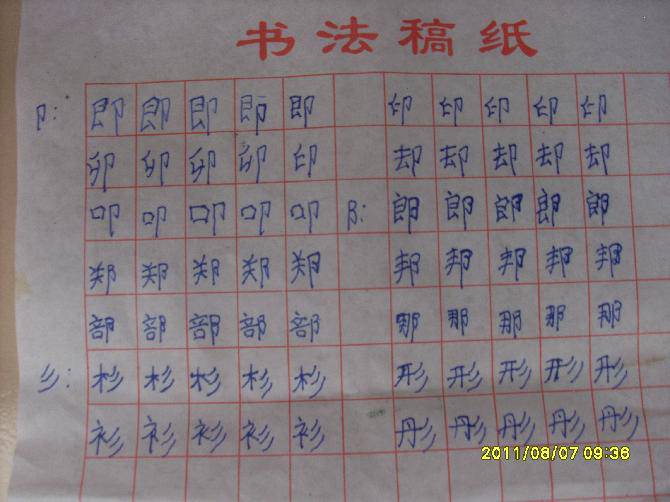 书法稿纸
卩: 即 即 即 即 即 印 印 印 印 印
卯 卯 卯 卯 印 却 却 却 却 却
叩 叩 叩 叩 叩 阝: 郎 郎 郎 郎 郎
郑 郑 郑 郑 郑 邦 邦 邦 邦 邦
部 部 部 部 部 那 那 那 那 那
彡: 杉 杉 杉 杉 杉 形 形 形 形 形
衫 衫 衫 衫 衫 彤 彤 彤 彤 彤
2011/08/07 09:36